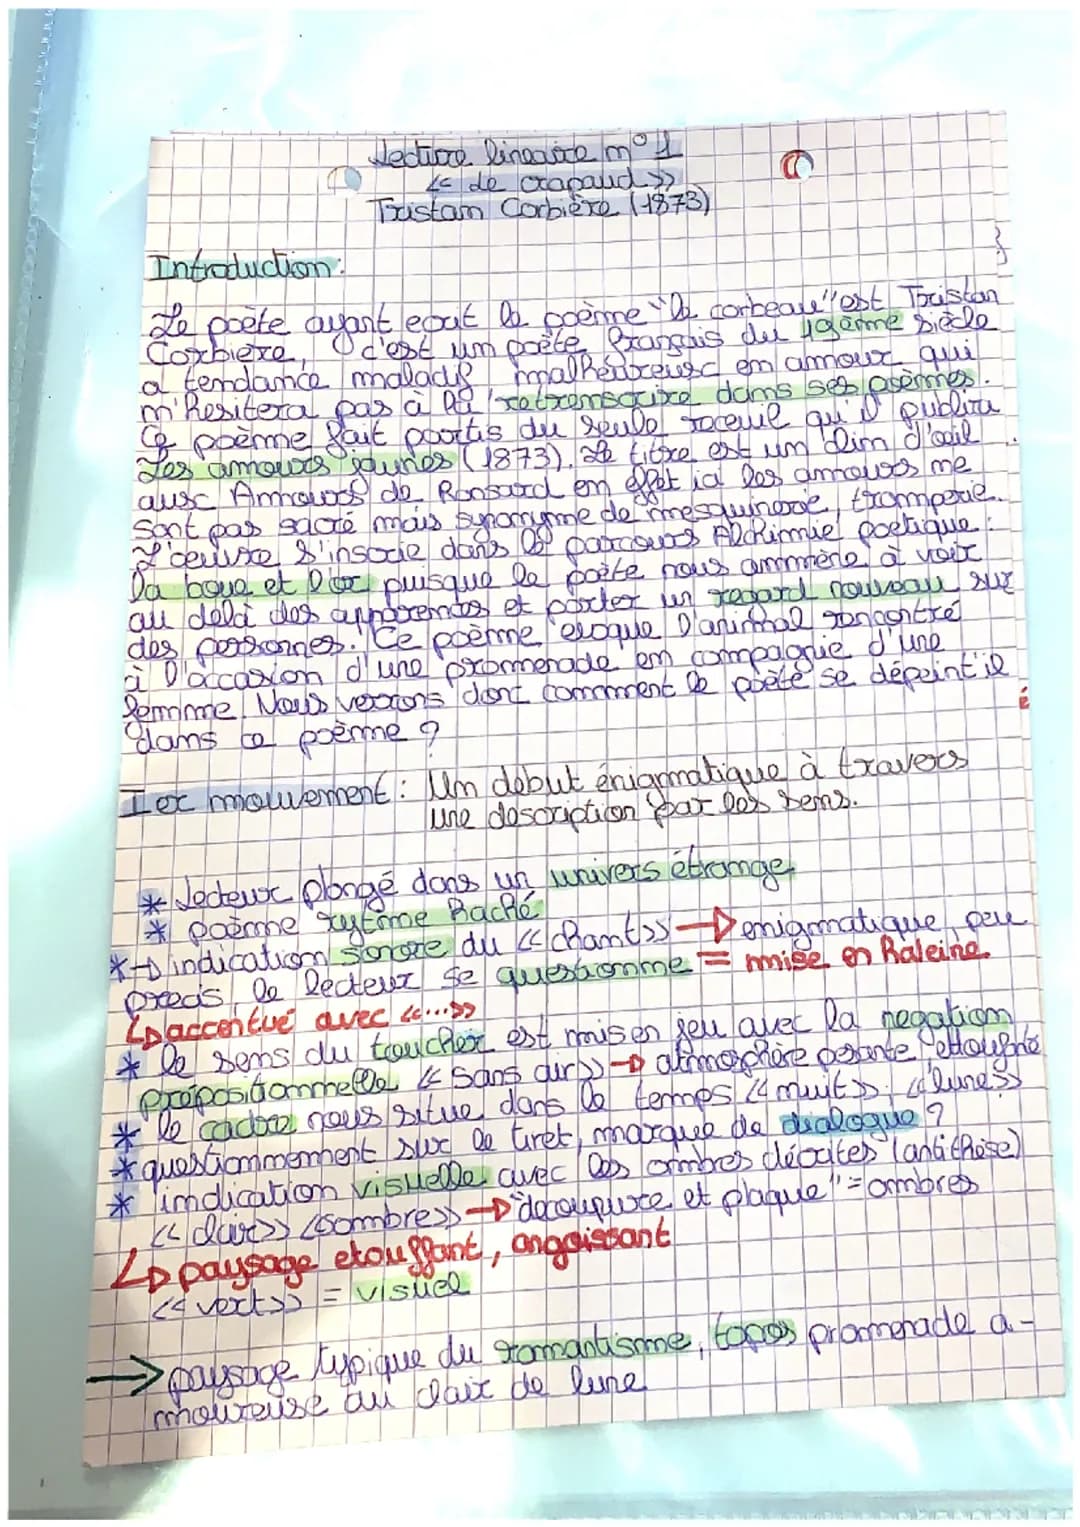 Lecture lineaire n° 1
<< Le crapaud >>
Tristan Corbière (1873)
Introduction:
Le poète ayant ecrit le poème "le corbeau" est Tristan
Corbière, c'est un poète français du 19ème siècle
a tendance maladif, malheureux en amour qui
n'hesitera pas à la retranscrire dans ses poèmes.
Ce poème fait partis du seule receuil qu'il publira
Les amours jaunes (1873). Le titre est un clin d'œil
aux Amours de Ronsard en effet ici les amours ne
sont pas sacré mais synonyme de mesquinerie, tromperie.
L'œuvre s'inscrie dans le parcours Alchimie poetique :
la boue et l'or puisque le poète nous ammène à voir
au delà des apparences et porter un regard nouveau sur
des personnes. Ce poème evoque l'animal rencontré
à l'occasion d'une promenade en compagnie d'une
femme. Nous verrons dont comment le poète se dépeint'il
é
dans ce poème ?
Ier mouvement : Un debut énigmatique à travers
une description par les sens.
* Lecteur plongé dans un univers étrange
* poème rytme haché
*→ indication sonore du << chant >> → enigmatique, peu
precis, le lecteur se questionne = mise en haleine
↳ accentué avec <<...>>
* le sens du toucher est mis en jeu avec la negation
prépositionnelle << sans air >> → atmosphère pesante, etouffante
* le cadre nous situe dans le temps << nuit >> ; << lune >>
* questionnement sur le tiret, marque de dialogue ?
* indication visuelle avec les ombres décrites (antithèse)
<< clair >> << sombre >> → "decoupure et plaque" = ombres
↳ paysage etouffant, angoissant
<< vert >> = visuel
→ paysage typique du romantisme, topos promenade a-
moureuse au clair de lune